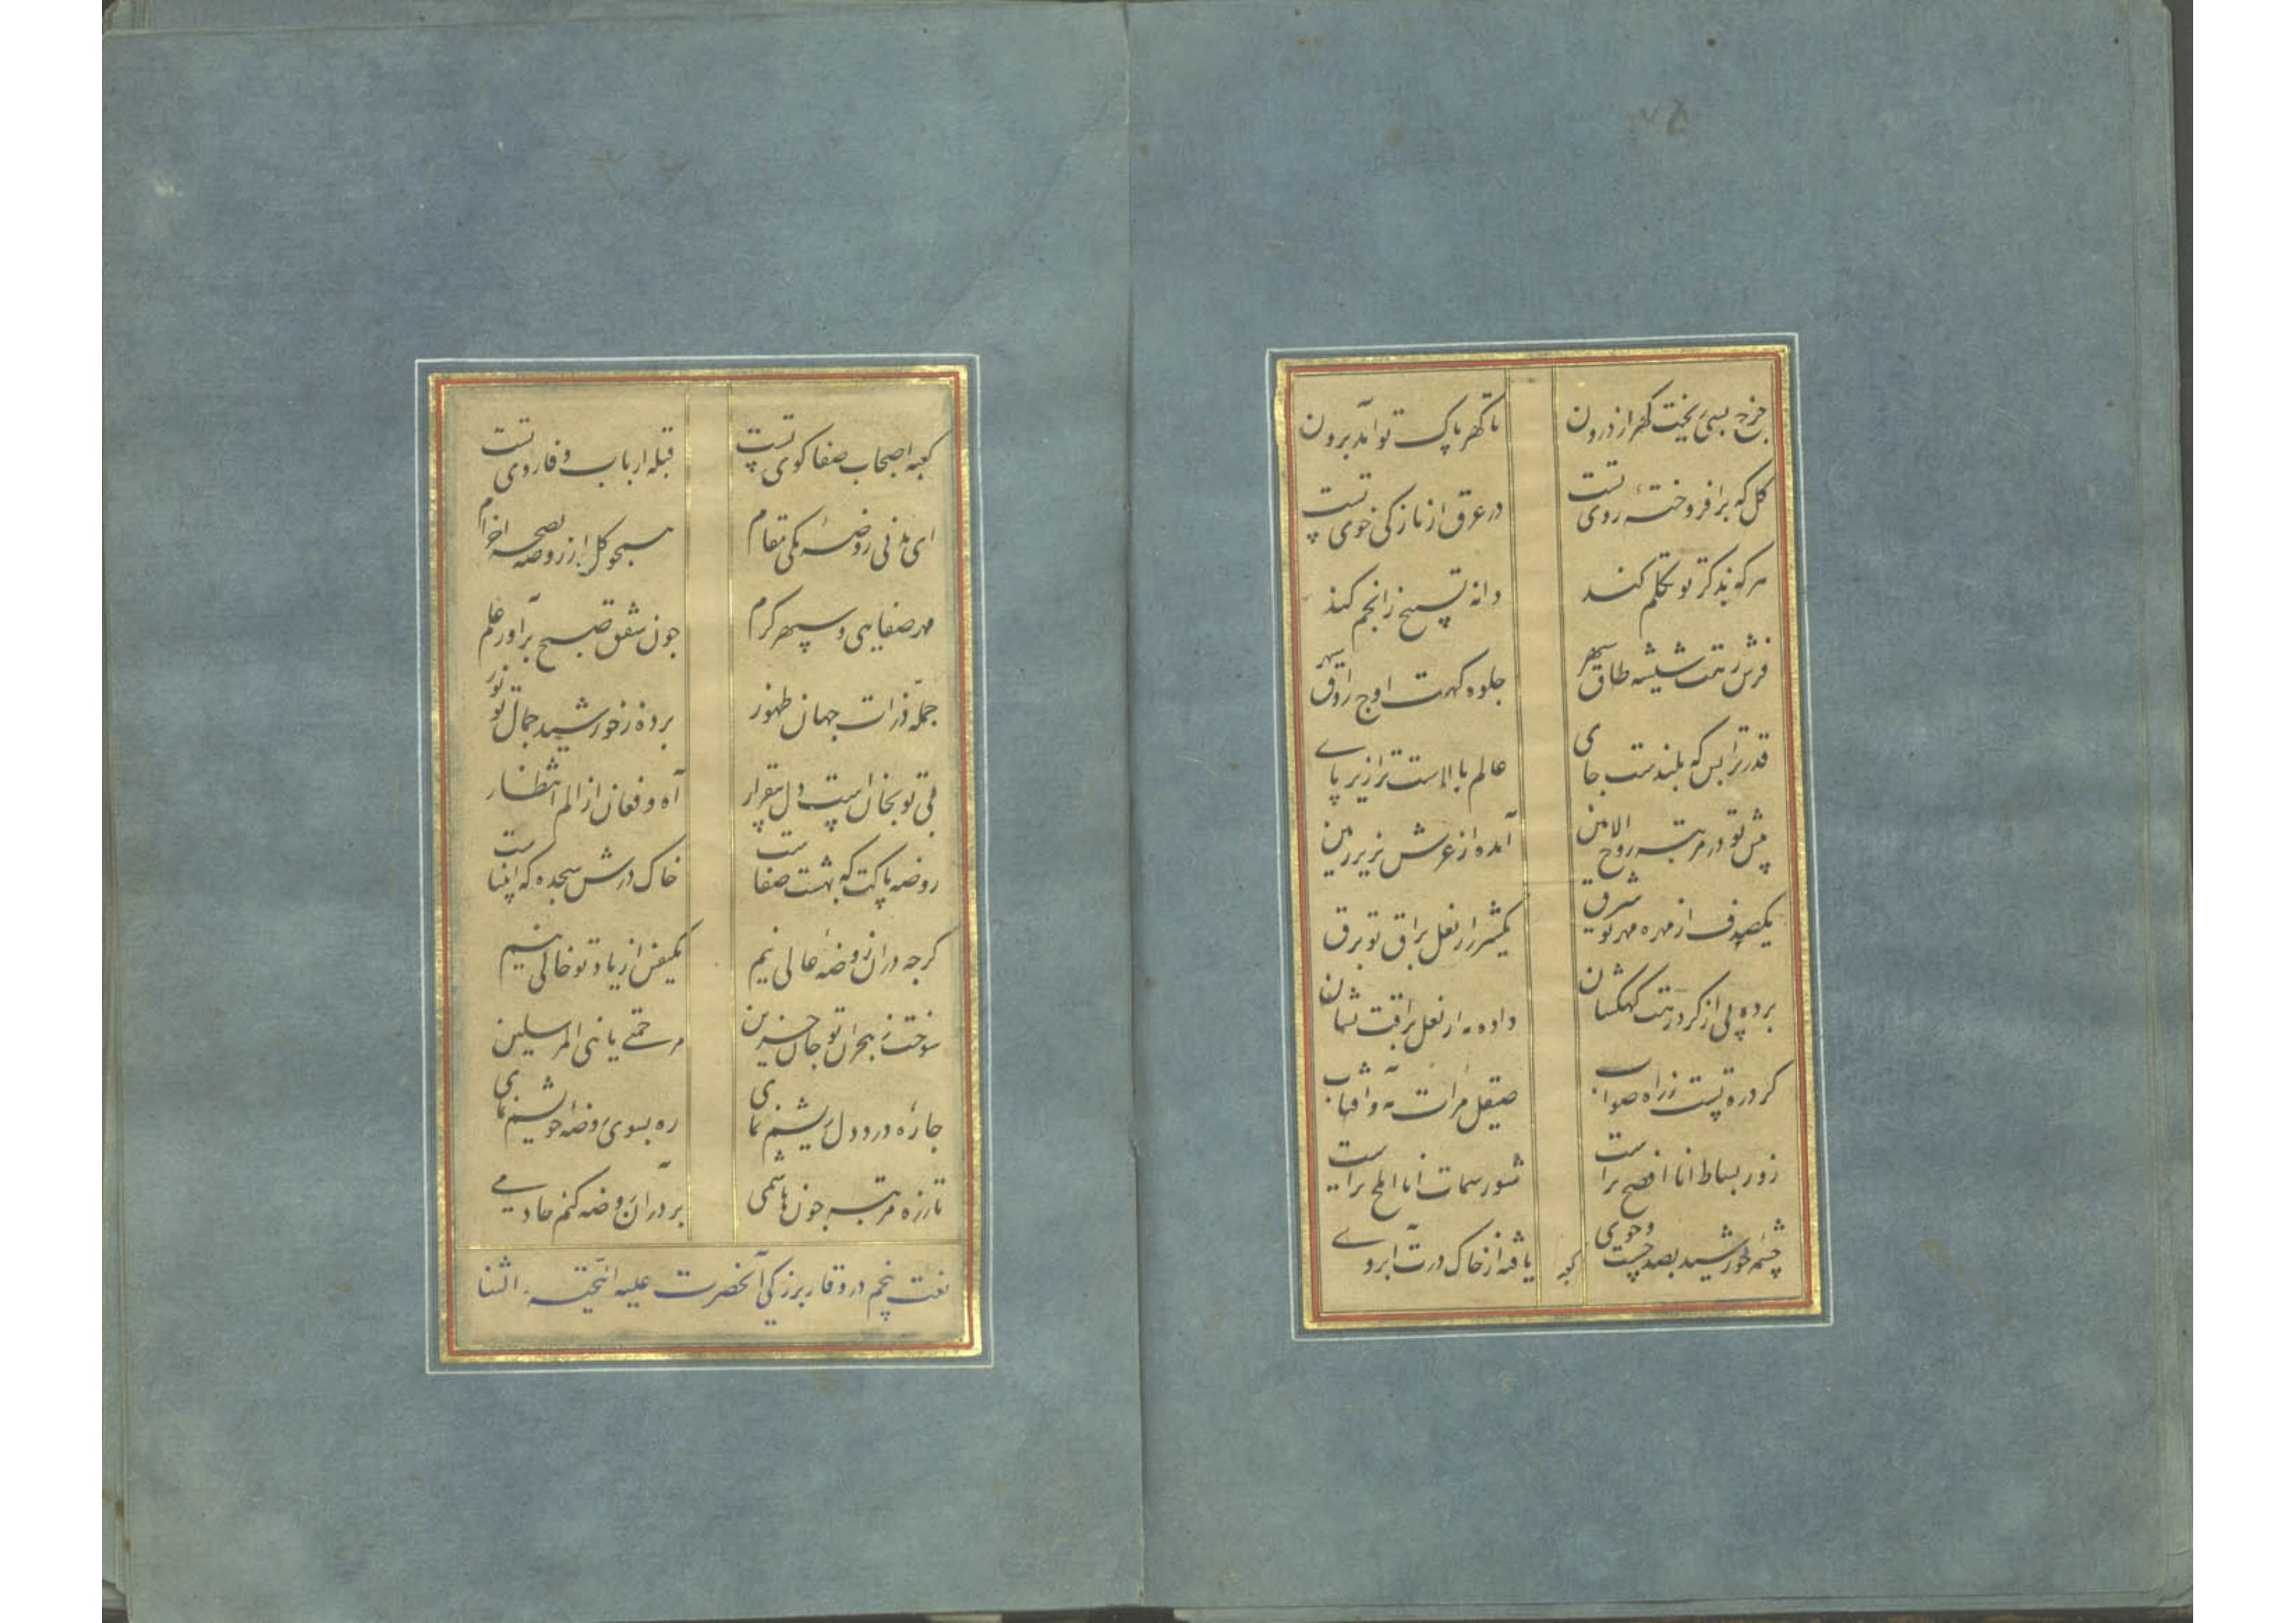 چرخ بسی بیخت گهر از درون
تا گهر پاک تو آمد برون
گل که برافروختهٔ روی تست
در عرق از نازکی خوی تست
هر که بذکر تو تکلم کند
دانه تسبیح ز انجم کند
فرش رهت شیشه طاق سپهر
جلوه گهت اوج رواق
قدر ترا بس که بلندست جای
عالم بالاست ترا زیر پای
پیش تو در مرتبه روح الامین
آمده از عرش بزیر زمین
یکصدف از مهره مهر تو شرق
یکشرر از نعل براق تو برق
برده پی از گرد رهت کهکشان
داده مه از نعل براقت نشان
گرد ره تست ز راه صواب
صیقل مرات مه و آفتاب
زور بساط انا افصح تراست
شور سمات انا املح تراست
چشمه خورشید بصد جست و جوی
یافته از خاک درت آبروی
کعبه
کعبه اصحاب صفا کوی تست
قبله ارباب وفا روی تست
ای مدنی روضهٔ مکی مقام
همچو گل از روضه بصحن خرام
مهر صفایی و سپهر کرم
چون شفق صبح برآور علم
جمله ذرات جهان ظهور
برده ز خورشید جمال تو نور
بی تو بجان است دل بیقرار
آه و فغان از الم انتظار
روضه پاکت که بهشت صفاست
خاک درش سجده که
گرچه در آن روضهٔ عالی نیم
یکنفس از یاد تو خالی نیم
سوخت ز هجران تو جان حزین
مرحمتی یا نبی المرسلین
چارهٔ درد دل ریشم نمای
ره بسوی روضه خویشم نمای
تا زره مرتبه چون هاشمی
بر در آن روضه کنم خادمی
نعت پنجم در وقار بزرگی آنحضرت علیه التحیة و الثنا